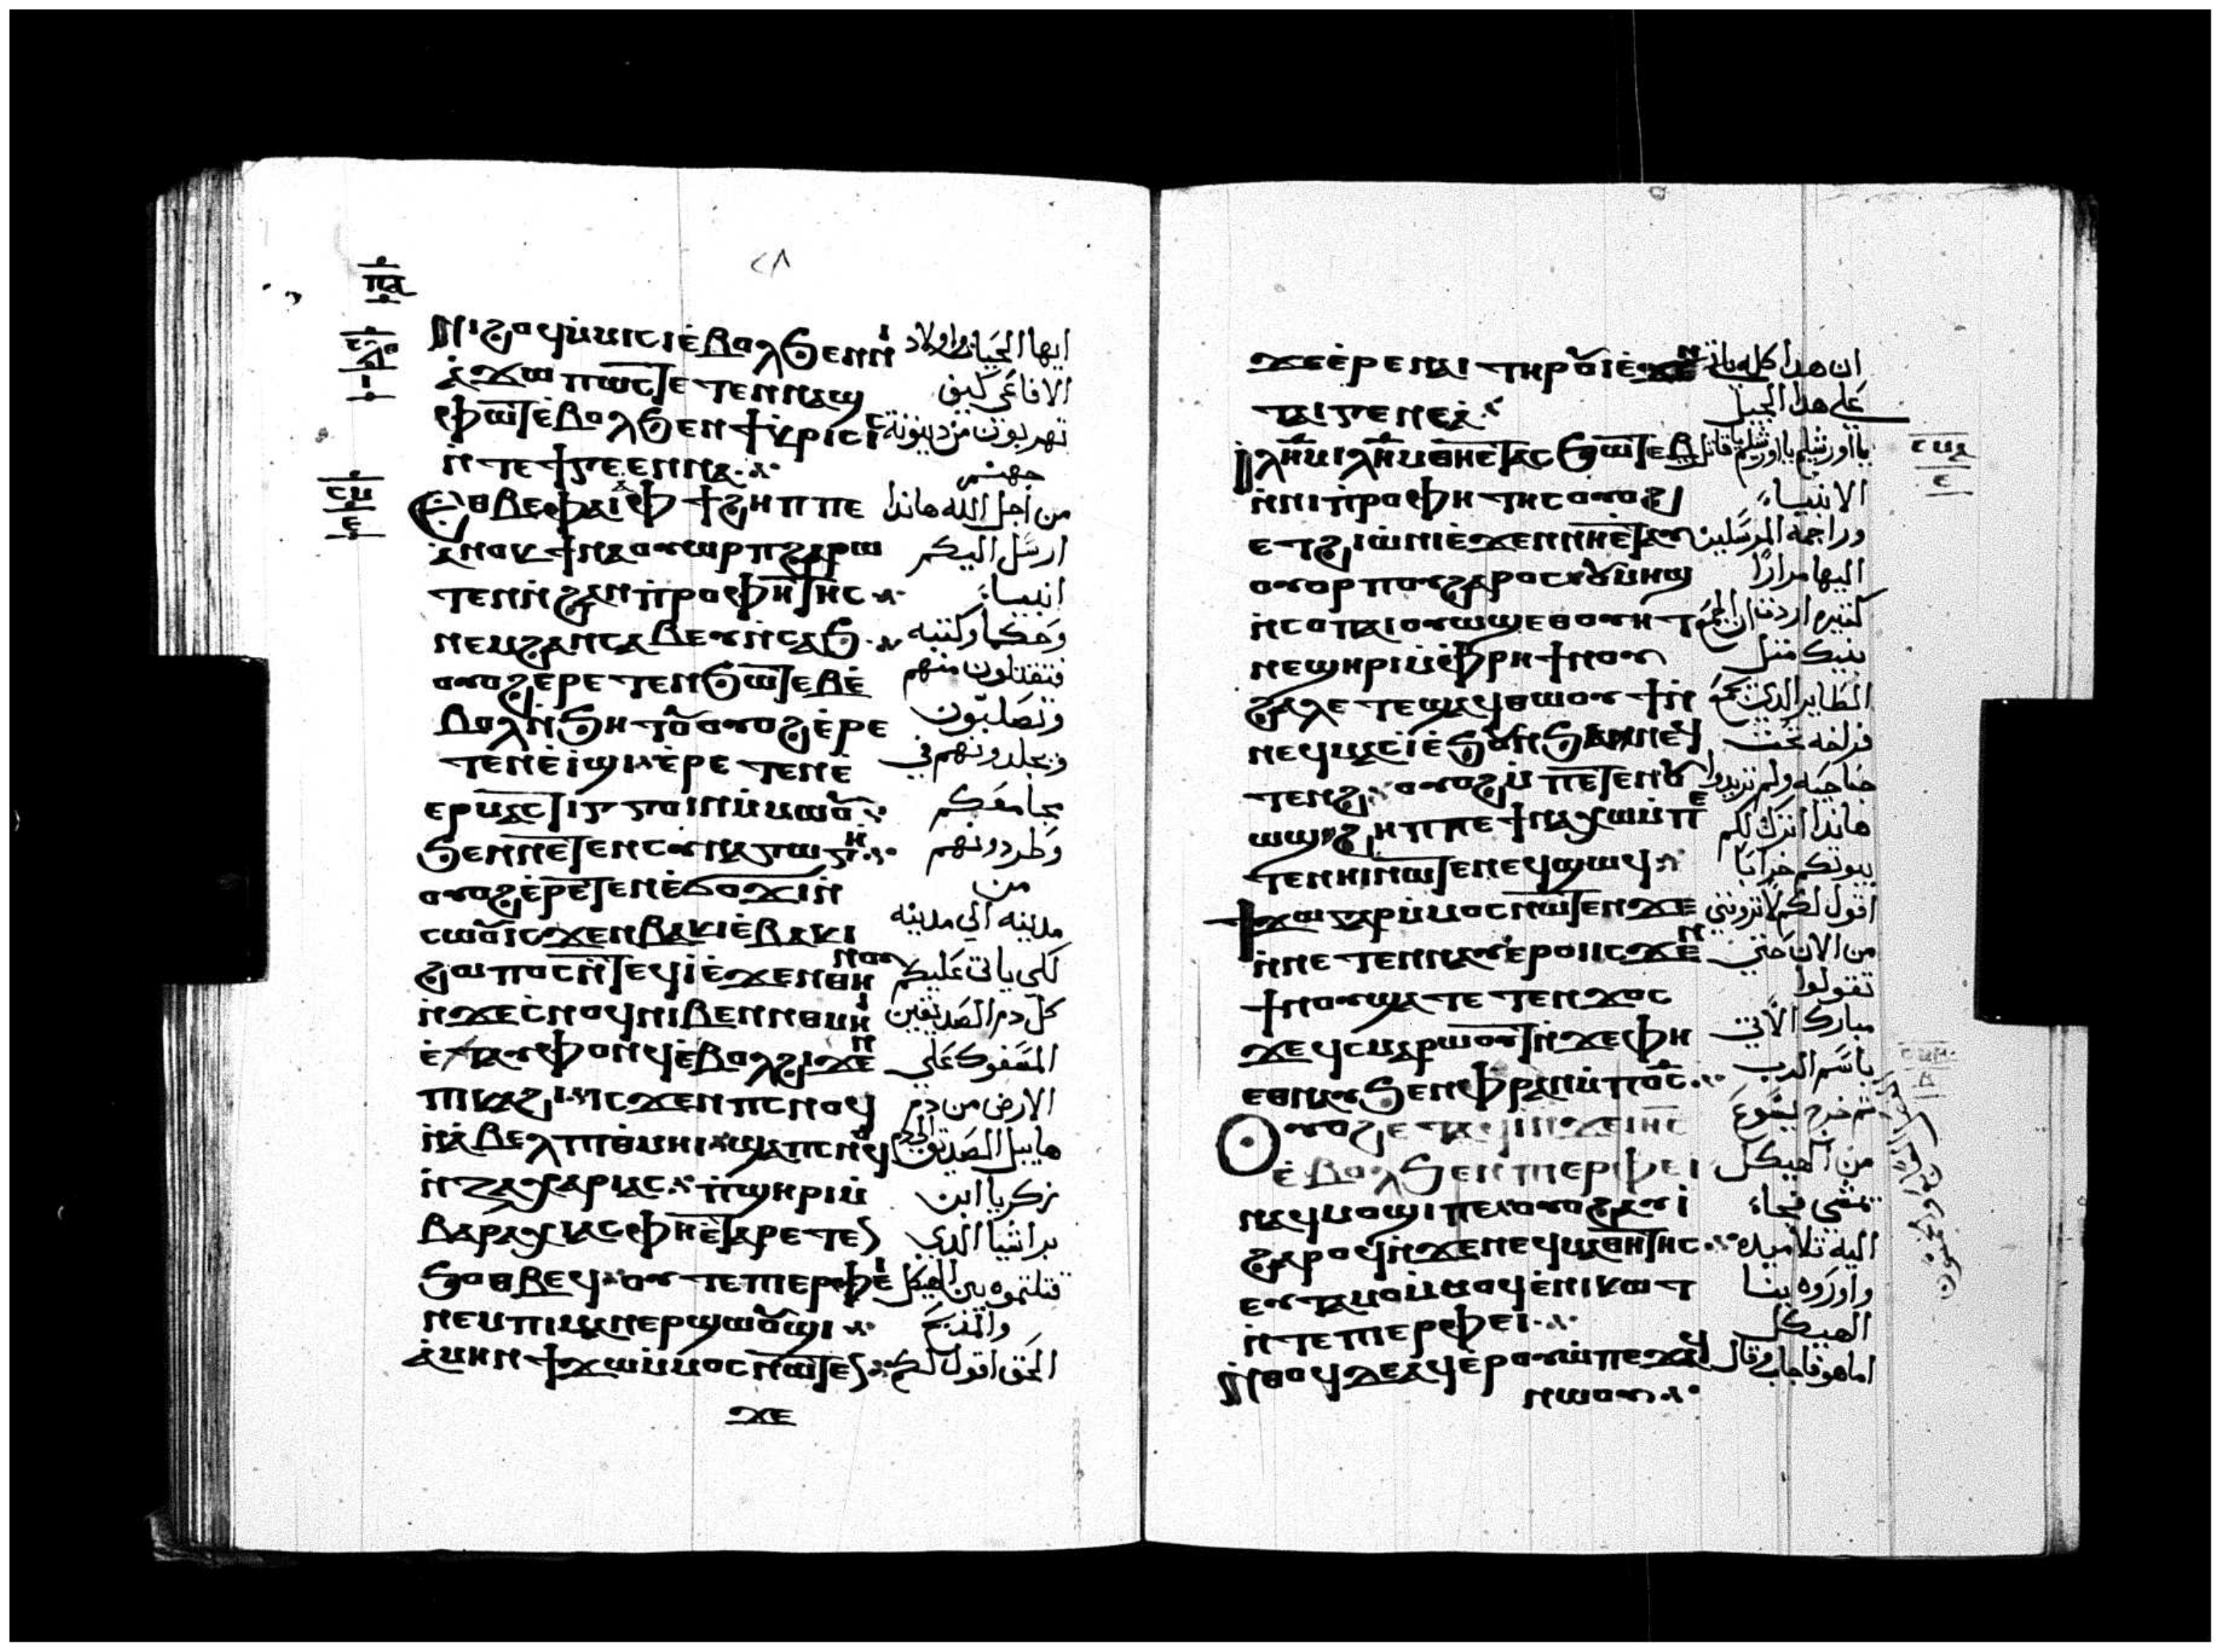 ⲡⲁ
ⲥⲙ
ⲉ
ⲛⲓϩⲟϥ ⲙ̇ⲙⲓⲥⲓ ⲉ̇ⲃⲟⲗ ϧⲉⲛ ⲛⲓ ايها الحيات واولاد
ⲁ̇ϫⲱ ⲡⲱⲥ ⲧⲉⲧⲉⲛⲛⲁϣ الافاعي كيف
ⲫⲱⲧ ⲉ̇ⲃⲟⲗ ϧⲉⲛ ϯⲕⲣⲓⲥⲓⲥ تهربون من دينونة
ⲛ̇ⲧⲉ ϯⲅⲉⲉⲛⲛⲁ جهنم
ⲉⲑⲃⲉ ⲫⲁⲓ ⲫϯ ϩⲏⲡⲡⲉ من اجل الله هاندا
ⲁ̇ⲛⲟⲕ ϯⲛⲁⲟⲩⲱⲣⲡ ϩⲁⲣⲱ ارسل اليكم
ⲧⲉⲛ ⲛ̇ϩⲁⲛⲡ̇ⲣⲟⲫⲏⲧⲏⲥ انبياء
ⲛⲉⲙ ϩⲁⲛⲥⲁⲃⲉⲩ ⲛ̇ⲥⲁϧ وحكما وكتبه
ⲟⲩⲟϩ ⲉ̇ⲣⲉⲧⲉⲛϧⲱⲧⲉⲃ ⲉ̇ فتقتلون منهم
ⲃⲟⲗ ⲛ̇ϧⲏⲧⲟⲩ ⲟⲩⲟϩ ⲉ̇ⲣⲉ وتصلبون
ⲧⲉⲛⲉ̇ⲓ̇ϣⲓ ⲉ̇ⲣⲉⲧⲉⲛⲉ̇ وتجلدونهم في
ⲉⲣⲙⲁⲥⲧⲓⲅⲅⲟⲓⲛ ⲙ̇ⲙⲱⲟⲩ مجامعكم
ϧⲉⲛ ⲛⲉⲧⲉⲛⲥⲩⲛⲁⲅⲱⲅⲏ وطردونهم
ⲟⲩⲟϩ ⲉ̇ⲣⲉⲧⲉⲛⲉ̇ϭⲟϫⲓ ⲛ̇ من
ⲥⲱⲟⲩ ⲓⲥϫⲉⲛ ⲃⲁⲕⲓ ⲉ̇ⲃⲁⲕⲓ مدينه الي مدينه
ϩⲱⲡⲟⲥ ⲛ̇ⲧⲉϥⲓ̇ ⲉ̇ϫⲉⲛ ⲑⲏⲛⲟⲩ لكي ياتي عليكم
ⲛ̇ϫⲉ ⲥ̇ⲛⲟϥ ⲛⲓⲃⲉⲛ ⲛ̇ⲑⲙⲏⲓ كل دم الصديقين
ⲉ̇ⲧⲁⲩⲫⲟⲛϥ ⲉ̇ⲃⲟⲗ ϩⲓϫⲉⲛ المسفوك علي
ⲡⲓⲕⲁϩⲓ ⲓⲥϫⲉⲛ ⲡⲥⲛⲟϥ الارض من دم
ⲛ̇ⲁ̇ⲃⲉⲗ ⲡⲓⲑⲙⲏⲓ ϣⲁ ⲡⲥⲛⲟϥ هابيل الصديق الي دم
ⲛ̇ⲍⲁⲭⲁⲣⲓⲁⲥ ⲡ̇ϣⲏⲣⲓ ⲙ̇ زكريا ابن
ⲃⲁⲣⲁⲭⲓⲁⲥ ⲫⲏ ⲉ̇ⲧⲁⲣⲉⲧⲉⲛ براشيا الذي
ϧⲟⲑⲃⲉϥ ⲟⲩⲧⲉ ⲡⲓⲉⲣⲫⲉⲓ قتلتموه بين الهيكل
ⲛⲉⲙ ⲡⲓⲙⲁⲛⲉⲣϣⲱⲟⲩϣⲓ والمذبح
ⲁ̇ⲙⲏⲛ ϯϫⲱ ⲙ̇ⲙⲟⲥ ⲛⲱⲧⲉⲛ الحق اقول لكم
ϫⲉ
ϫⲉ ⲉ̇ⲣⲉ ⲛⲁⲓ ⲧⲏⲣⲟⲩ ⲓ̇ ⲉ̇ϫⲉⲛ ان هدا كله ياتي
ⲧⲁⲓⲅⲉⲛⲉⲁ̇ علي هدا الجيل
ⲓⲗⲏⲙ ⲓⲗⲏⲙ ⲑⲏ ⲉⲧⲁⲥϧⲱⲧⲉⲃ يا اورشليم يا اورشليم يا قاتله
ⲛ̇ⲛⲓⲡ̇ⲣⲟⲫⲏⲧⲏⲥ ⲟⲩⲟϩ الانبياء
ⲉⲧϩⲓⲱ̇ⲛⲓ ⲉ̇ϫⲉⲛ ⲛⲏ ⲉ̇ⲧⲁⲩ وراجمة المرسلين
ⲟⲩⲟⲣⲡⲟⲩ ϩⲁⲣⲟⲥ ⲟⲩⲙⲏϣ اليها مرارًا
ⲛ̇ⲥⲟⲡ ⲁⲓⲟⲩⲱϣ ⲉⲑⲟⲩⲏⲧ كثيره اردت ان اجمع
ⲛⲉϣⲏⲣⲓ ⲙ̇ⲫ̇ⲣⲏϯ ⲛⲟⲩ بنيك مثل
ϩⲁⲗⲉ ⲧⲉϣⲁϥⲑⲱⲟⲩϯ ⲛ̇ الطاير الدي يجمع
ⲛⲉϥⲙⲁⲥ ⲓ̇ ⲉ̇ϧⲟⲩⲛ ϧⲁ ⲛⲉϥ فراخه تحت
ⲧⲉⲛϩ ⲟⲩⲟϩ ⲙ̇ⲡⲉⲧⲉⲛⲟⲩ جناحيه ولم تريدوا
ⲱϣ ϩⲏⲡⲡⲉ ϯⲛⲁⲭⲱ ⲙ̇ⲡⲉ هاندا اترك لكم
ⲧⲉⲛⲏⲓ ⲛⲱⲧⲉⲛ ⲉϥϣⲏϥ بيوتكم خرابًا
ϯϫⲱ ⲅⲁⲣ ⲙ̇ⲙⲟⲥ ⲛⲱⲧⲉⲛ ϫⲉ اقول لكم لا تروني
ⲛ̇ⲛⲉⲧⲉⲛⲛⲁⲩ ⲉ̇ⲣⲟⲓ ⲓⲥϫⲉⲛ من الان حتي
ϯⲛⲟⲩ ϣⲁⲧⲉⲧⲉⲛϫⲟⲥ تقولوا
ϫⲉ ϥⲥⲙⲁⲣⲱⲟⲩⲧ ⲛ̇ϫⲉ ⲫⲏ مبارك الاتي
ⲉⲑⲛⲏⲩ ϧⲉⲛ ⲫⲣⲁⲛ ⲙ̇ⲡⲟⲥ باسم الرب
ⲟⲩⲟϩ ⲉⲧⲁϥⲓ̇ ⲛ̇ϫⲉ ⲓⲏⲥ ثم خرج يسوع
ⲉ̇ⲃⲟⲗ ϧⲉⲛ ⲡⲓⲉⲣⲫⲉⲓ من الهيكل
ⲛⲁϥⲙⲟϣⲓ ⲡⲉ ⲟⲩⲟϩ ⲁⲩⲓ̇ تمشي فجاء
ϩⲁⲣⲟϥ ⲛ̇ϫⲉ ⲛⲉϥⲙⲁⲑⲏⲧⲏⲥ اليه تلاميده
ⲉⲩⲧⲁⲙⲟ ⲙ̇ⲙⲟϥ ⲉ̇ⲛⲓⲕⲱⲧ واوروه بنا
ⲛ̇ⲧⲉ ⲡⲓⲉⲣⲫⲉⲓ الهيكل
ⲛ̇ⲑⲟϥ ⲇⲉ ⲁϥⲉ̇ⲣⲟⲩⲱ̇ ⲡⲉϫⲁϥ اما هو فاجاب وقال
ⲛⲱⲟⲩ
ⲥⲙⲁ
ⲉ
ⲥⲙⲃ
ⲃ